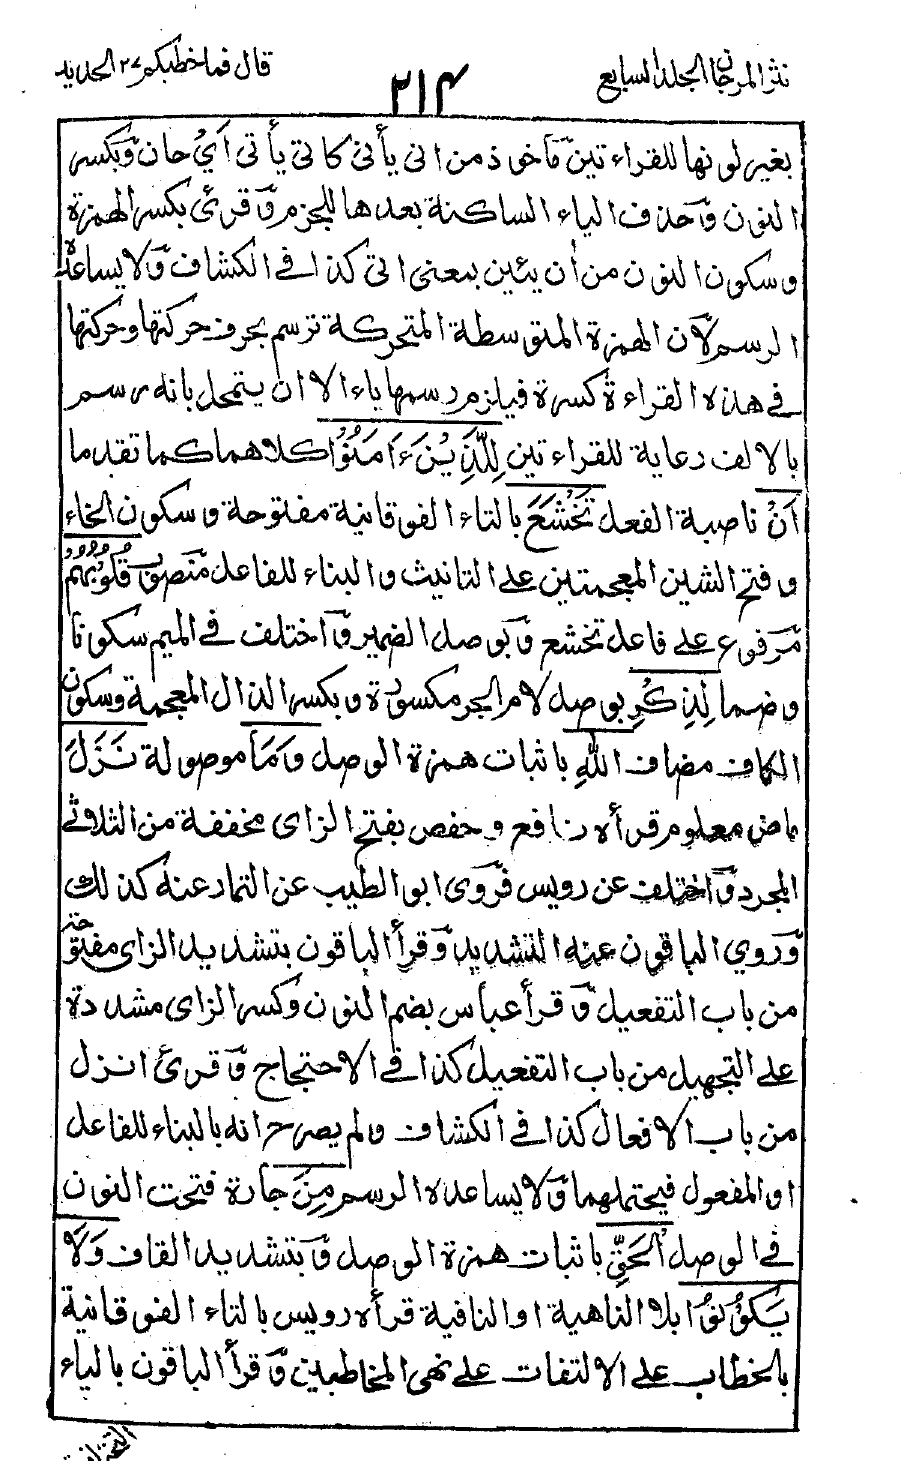 نثر المرجان الجلد السابع
٢١٤
قال فما خطبكم ٢٧ الحديد
بغير لونها للقراءتين مأخوذ من انى يأنى كاتى يأتى أي حان وبكسر
النون وحذف الياء الساكنة بعدها للجزم وقرئ بكسر الهمزة
وسكون النون من أن يئين بمعنى اتى كذا في الكشاف ولا يساعده
الرسم لان الهمزة المتوسطة المتحركة ترسم بحرف حركتها وحركتها
في هذه القراءة كسرة فيلزم رسمها ياء الا ان يتمحل بانه رسم
بالالف رعاية للقراءتين لِلَّذِيْنَ ءَامَنُوْا كلاهما كما تقدما
اَنْ ناصبة الفعل تَخْشَعَ بالتاء الفوقانية مفتوحة وسكون الخاء
وفتح الشين المعجمتين على التانيث والبناء للفاعل منصوب قُلُوْبُهُمْ
مرفوع على فاعل تخشع وبوصل الضمير واختلف في الميم سكونا
وضما لِذِكْرِ بوصل لام الجر مكسورة وبكسر الذال المعجمة وسكون
الكاف مضاف اللّٰهِ باثبات همزة الوصل وَمَا موصولة نَزَلَ
ماض معلوم قرأه نافع وحفص بفتح الزاى مخففة من الثلاثى
المجرد واختلف عن رويس فروى ابو الطيب عن التمار عنه كذلك
وروي الباقون عنه التشديد وقرأ الباقون بتشديد الزاى مفتوحة
من باب التفعيل وقرأ عباس بضم النون وكسر الزاى مشددة
على التجهيل من باب التفعيل كذا في الاحتجاج وقرئ انزل
من باب الافعال كذا في الكشاف ولم يصرح انه بالبناء للفاعل
او المفعول فيحتملهما ولا يساعده الرسم مِنَ جارة فتحت النون
في الوصل الْحَقِّ باثبات همزة الوصل وبتشديد القاف وَلَا
يَكُوْنُوْا بلا الناهية او النافية قرأه رويس بالتاء الفوقانية
بالخطاب على الالتفات على نهى المخاطبين وقرأ الباقون بالياء
التحتانية